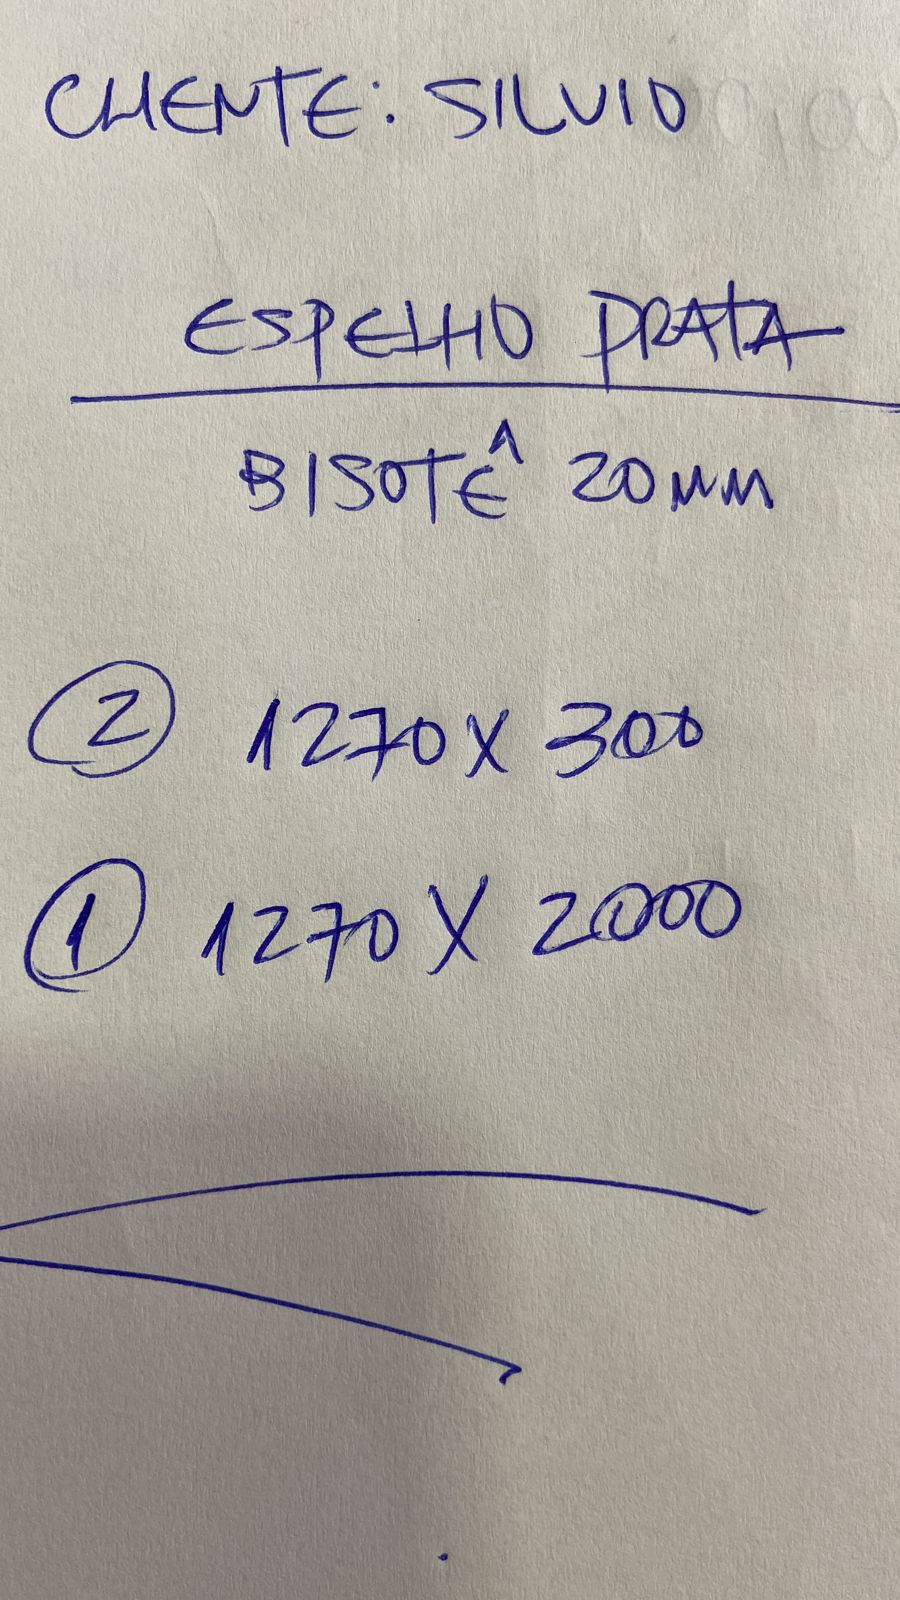 CLIENTE: SILVIO
ESPELHO PRATA
BISOTÊ 20MM
2 1270 X 300
1 1270 X 2000